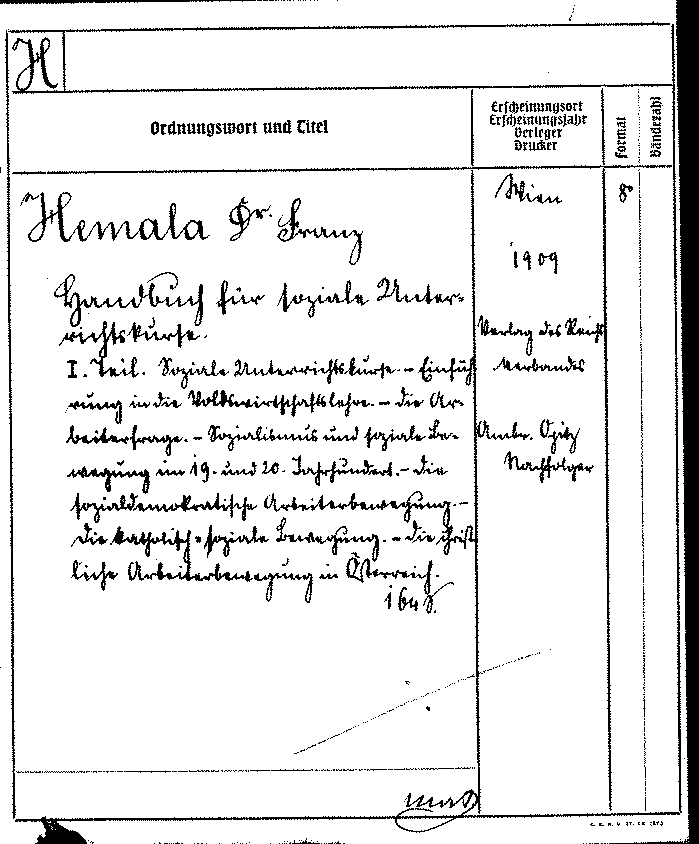 H
Ordnungswort und Titel
Erscheinungsort
Erscheinungsjahr
Verleger
Drucker
Format
Bändezahl
Hemala Dr. Franz
Handbuch für soziale Unter-
richtskurse.
I. Teil. Soziale Unterrichtskurse. - Einfüh
rung in die Volkswirtschaftslehre. - die Ar-
beiterfrage. - Sozialismus und soziale Be-
wegung im 19. und 20. Jahrhundert. - die
sozialdemokratische Arbeiterbewegung. -
die katholisch-soziale Bewegung. - die christ
liche Arbeiterbewegung in Österreich.
164 S.
Wien
1909
Verlag des Reichs
verbandes
Ambr. Opitz
Nachfolger
8°